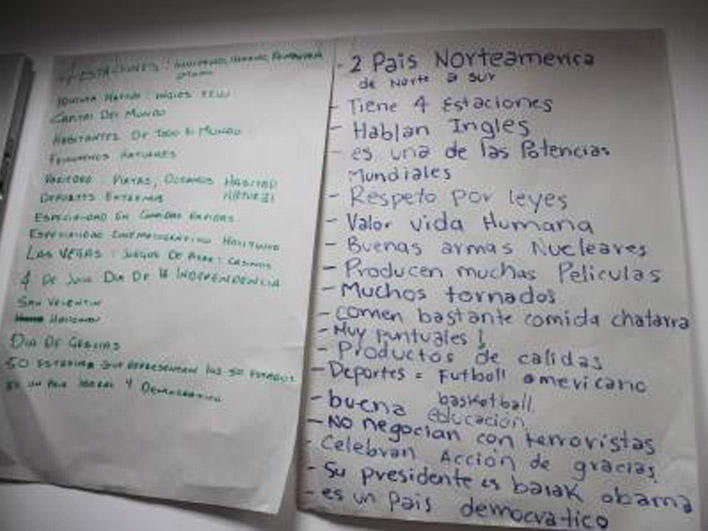 4 ESTACIONES: INVIERNO, VERANO, PRIMAVERA
OTOÑO
IDIOMA NATIVO: INGLES EEUU
CAPITAL DEL MUNDO
HABITANTES DE TODO EL MUNDO
FENOMENOS NATURALES
VARIEDAD: PLAYAS, OCEANOS HABITAD
NATURAL
DEPORTES EXTREMOS
ESPECIALIDAD EN COMIDAS RAPIDAS
ESPECIALIDAD CINEMATOGRÁFICO HOLLYWOOD
LAS VEGAS: JUEGOS DE AZAR: CASINOS
4 DE JULIO DIA DE LA INDEPENDENCIA
SAN VALENTIN
HALLOWEEN
DIA DE GRACIAS
50 ESTRELLAS QUE REPRESENTAN LOS 50 ESTADOS
ES UN PAIS LIBERAL Y DEMOCRATICO
- 2 Pais Norteamerica
de Norte a sur
- Tiene 4 Estaciones
- Hablan Ingles
- es una de las Potencias
Mundiales
- Respeto por leyes
- Valor vida Humana
- Buenas armas Nucleares
- Producen muchas Peliculas
- Muchos tornados
- comen bastante comida chatarra
- Muy puntuales !
- Productos de calidas
- Deportes = Futboll americano
basketball.
- buena educación
- No negocian con terroristas
- Celebran Acción de gracias
- Su presidente es barak obama
- es un pais democratico